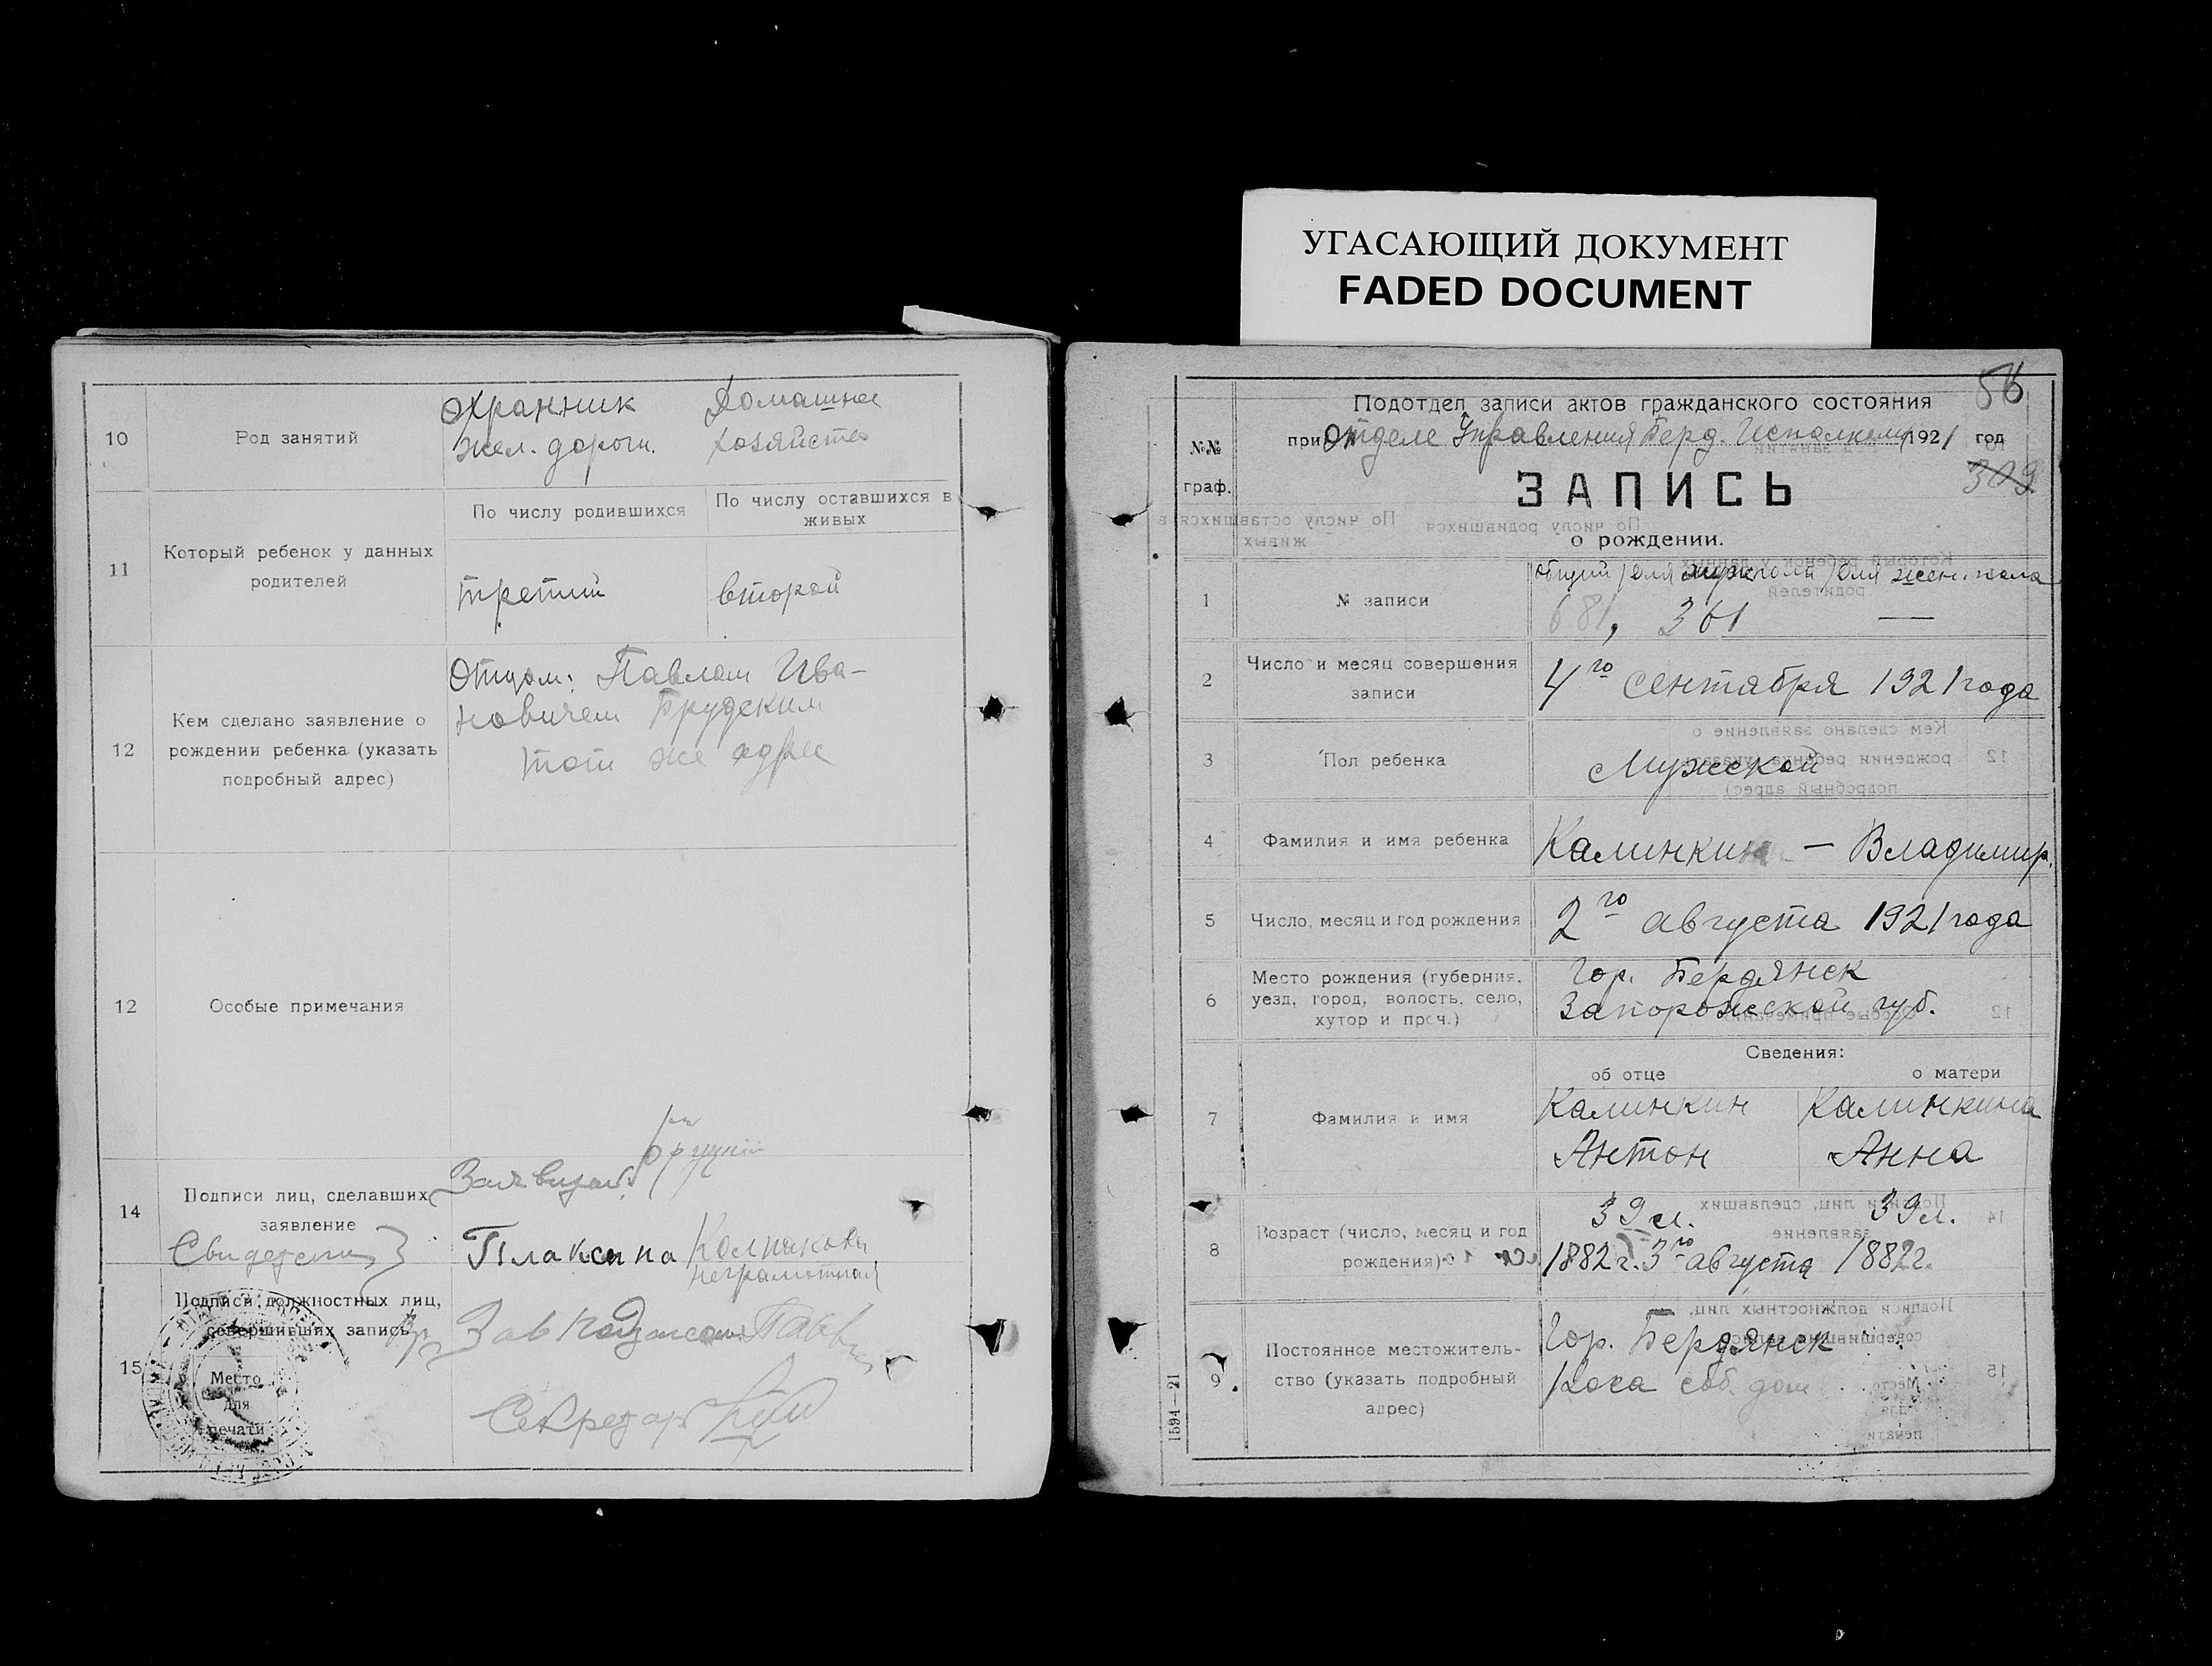 УГАСАЮЩИЙ ДОКУМЕНТ
FADED DOCUMENT
10
Род занятий
Охранник
жел. дороги.
Домашнее
хозяйство
11
Который ребенок у данных
родителей
По числу родившихся
По числу оставшихся в
живых
третий
второй
12
Кем сделано заявление о
рождении ребенка (указать
подробный адрес)
Отцом: Павлом Ива-
новичем Брудским
тот же адрес
12
Особые примечания
14
Подписи лиц, сделавших
заявление
Свидетели
Плаксина
неграмотная
15
Подписи должностных лиц,
совершивших запись
Место
для
печати
Зав
Секретарь
56
Подотдел записи актов гражданского состояния
при Отделе Управления Берд. Исполкома 1921 год
309
№№
граф.
ЗАПИСЬ
о рождении.
1
№ записи
общий / для муж. пола / для жен. пола
681, 361 —
2
Число и месяц совершения
записи
4го сентября 1921 года
3
Пол ребенка
Мужской
4
Фамилия и имя ребенка
Калинкин — Владимир.
5
Число, месяц и год рождения
2го августа 1921 года
6
Место рождения (губерния,
уезд, город, волость, село,
хутор и проч.)
Гор. Бердянск
Запорожской губ.
Сведения:
об отце
о матери
7
Фамилия и имя
Калинкин
Антон
Калинкина
Анна
8
Возраст (число, месяц и год
рождения)
39 л.
39 л.
1882 г. 3го августа 1882 г.
9
Постоянное местожитель-
ство (указать подробный
адрес)
Гор. Бердянск
Коса соб. дом
1594—21